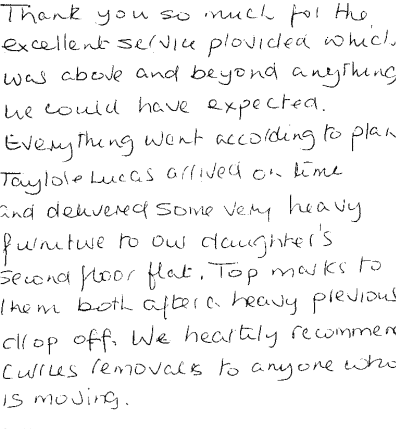 Thank you so much for the
excellent service provided which
was above and beyond anything
we could have expected.
Everything went according to plan
Taylor & Lucas arrived on time
and delivered some very heavy
furniture to our daughter's
second floor flat. Top marks to
them both after a heavy previous
drop off. We heartily recommen
removals to anyone who
is moving.